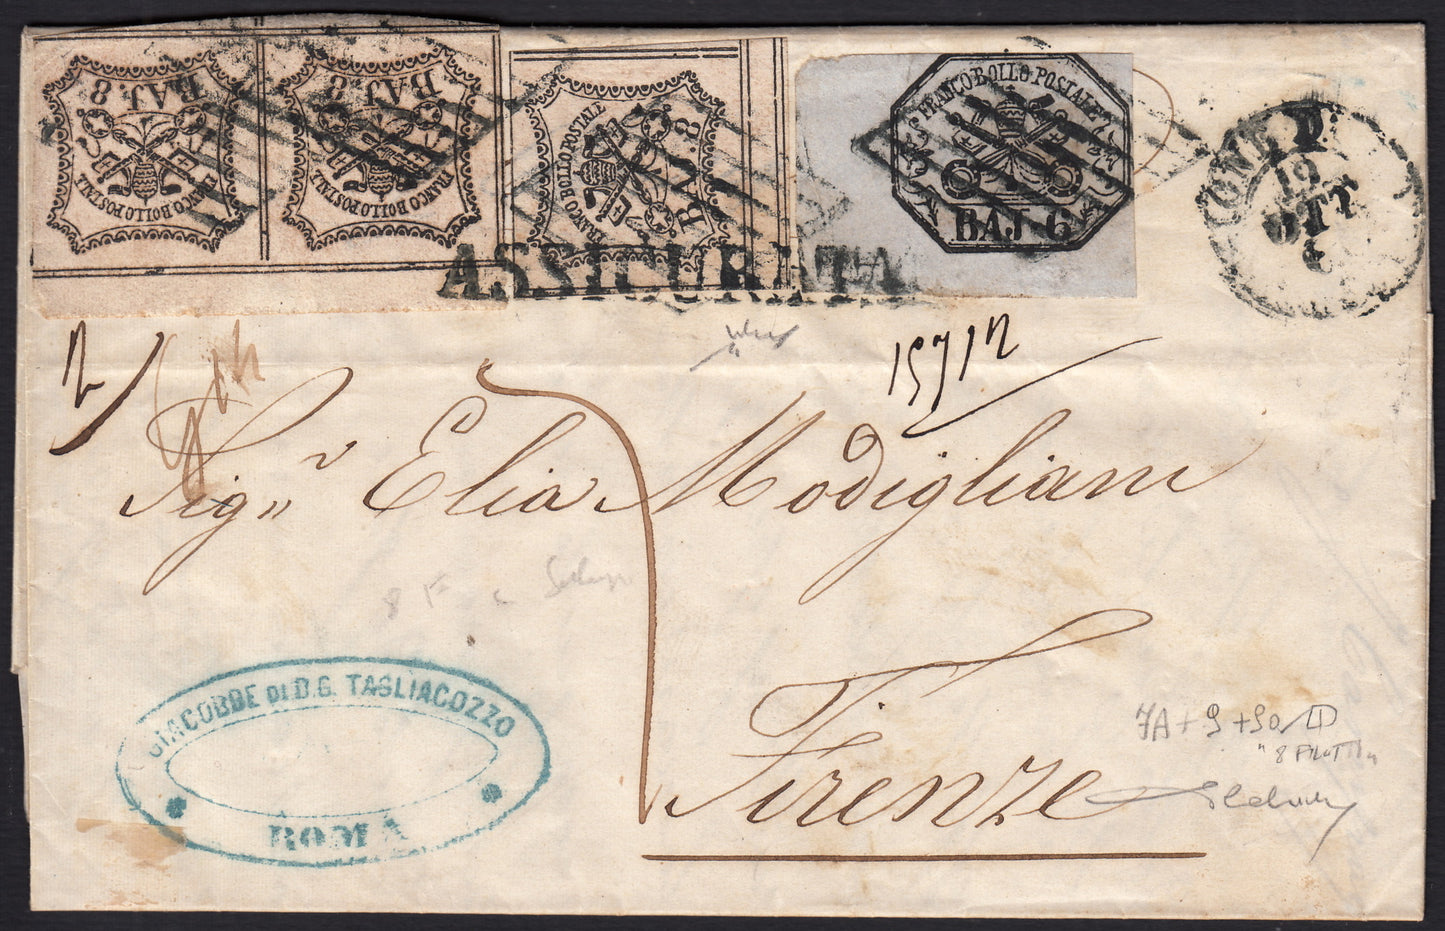 BAJ. 8
FRANCO BOLLO POSTALE
BAJ. 8
FRANCO BOLLO POSTALE
FRANCO BOLLO POSTALE
BAJ. 8
FRANCO BOLLO POSTALE
BAJ. 6
19
OTT
6
ASSICURATA
Sig.r Elia Modigliani
Firenze
GIACOBBE DI D.G. TAGLIACOZZO
ROMA
7A + 9 +
"8 FILETTI"